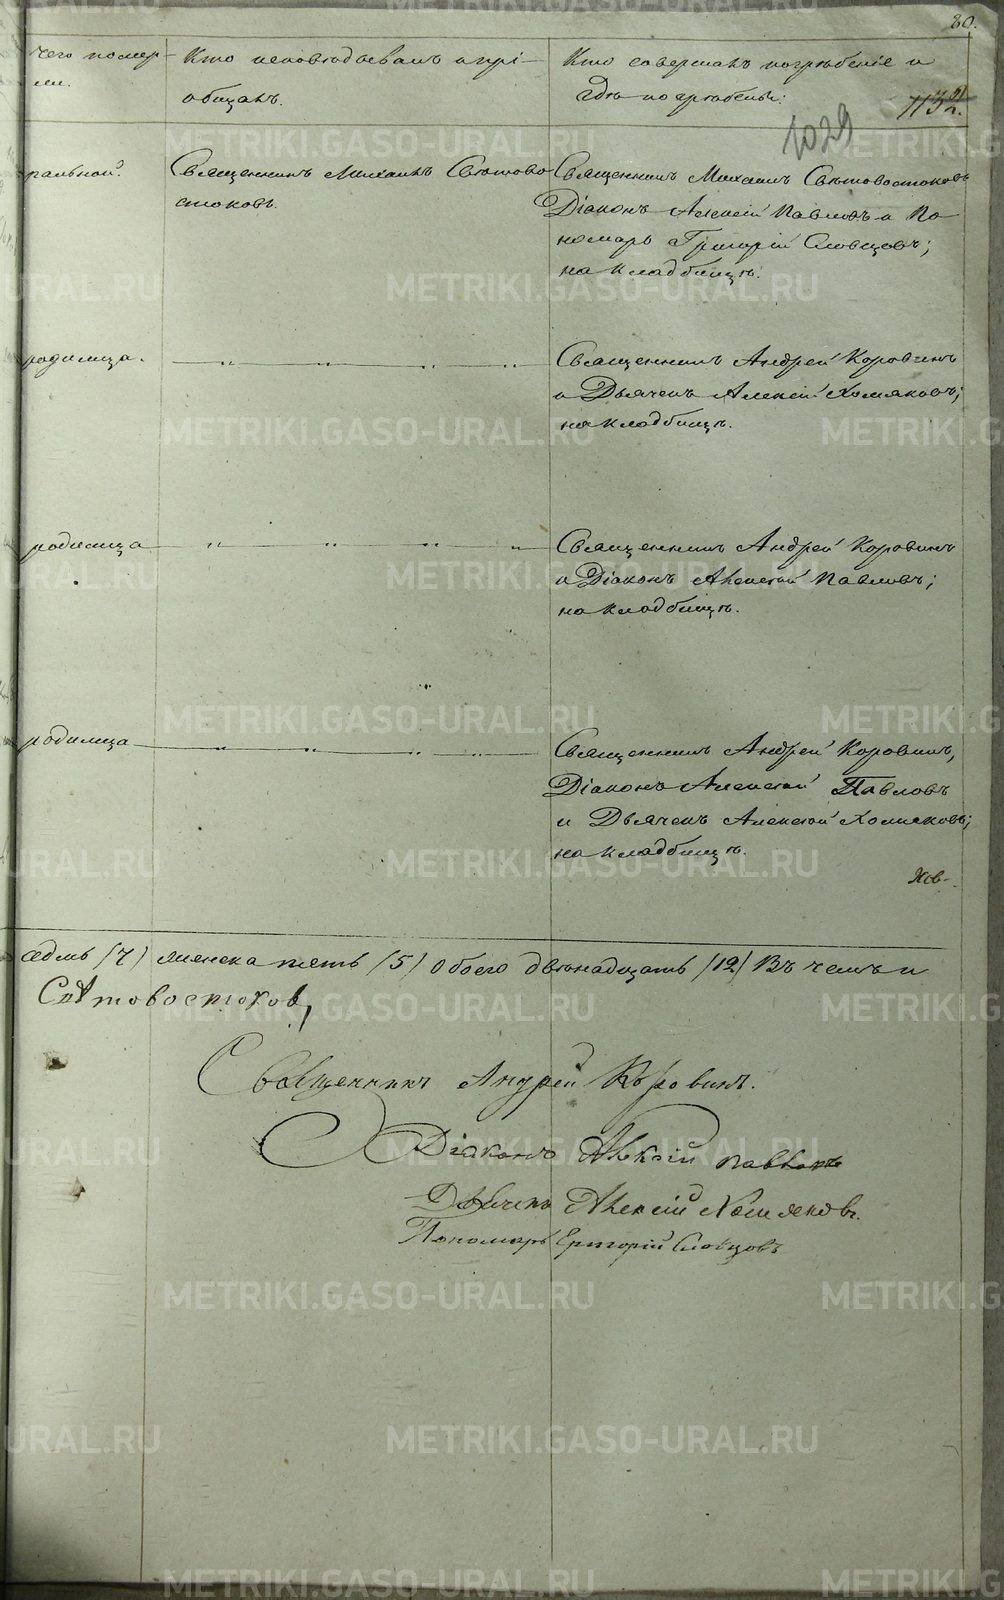 80.
чего помер-
ли.
Кто исповѣдывалъ и прі-
общалъ.
Кто совершалъ погребеніе и
гдѣ погребены:
1132.
1029
ральной.
Священникъ Михаилъ Свѣтово-
стоковъ.
Священникъ Михаилъ Свѣтовостоковъ
Діаконъ Алексій Павловъ и По
номарь Григорій Словцовъ;
на кладбищѣ.
родимца.
Священникъ Андрей Коровинъ
и Дьячекъ Алексій Хомяковъ;
на кладбищѣ.
родимца
Священникъ Андрей Коровинъ
и Діаконъ Алексѣй Павловъ;
на кладбищѣ.
родимца
Священникъ Андрей Коровинъ,
Діаконъ Алексѣй Павловъ
и Дьячекъ Алексѣй Хомяковъ;
на кладбищѣ.
седмь (7) женска пять (5) обоего двѣнадцать (12) Въ чемъ и
Свѣтовостоковъ,
Священникъ Андрей Коровинъ.
Діаконъ Алексій Павловъ
Дьячекъ Алексій Хомяковъ.
Пономарь Григорій Словцовъ
METRIKI.GASO-URAL.RU